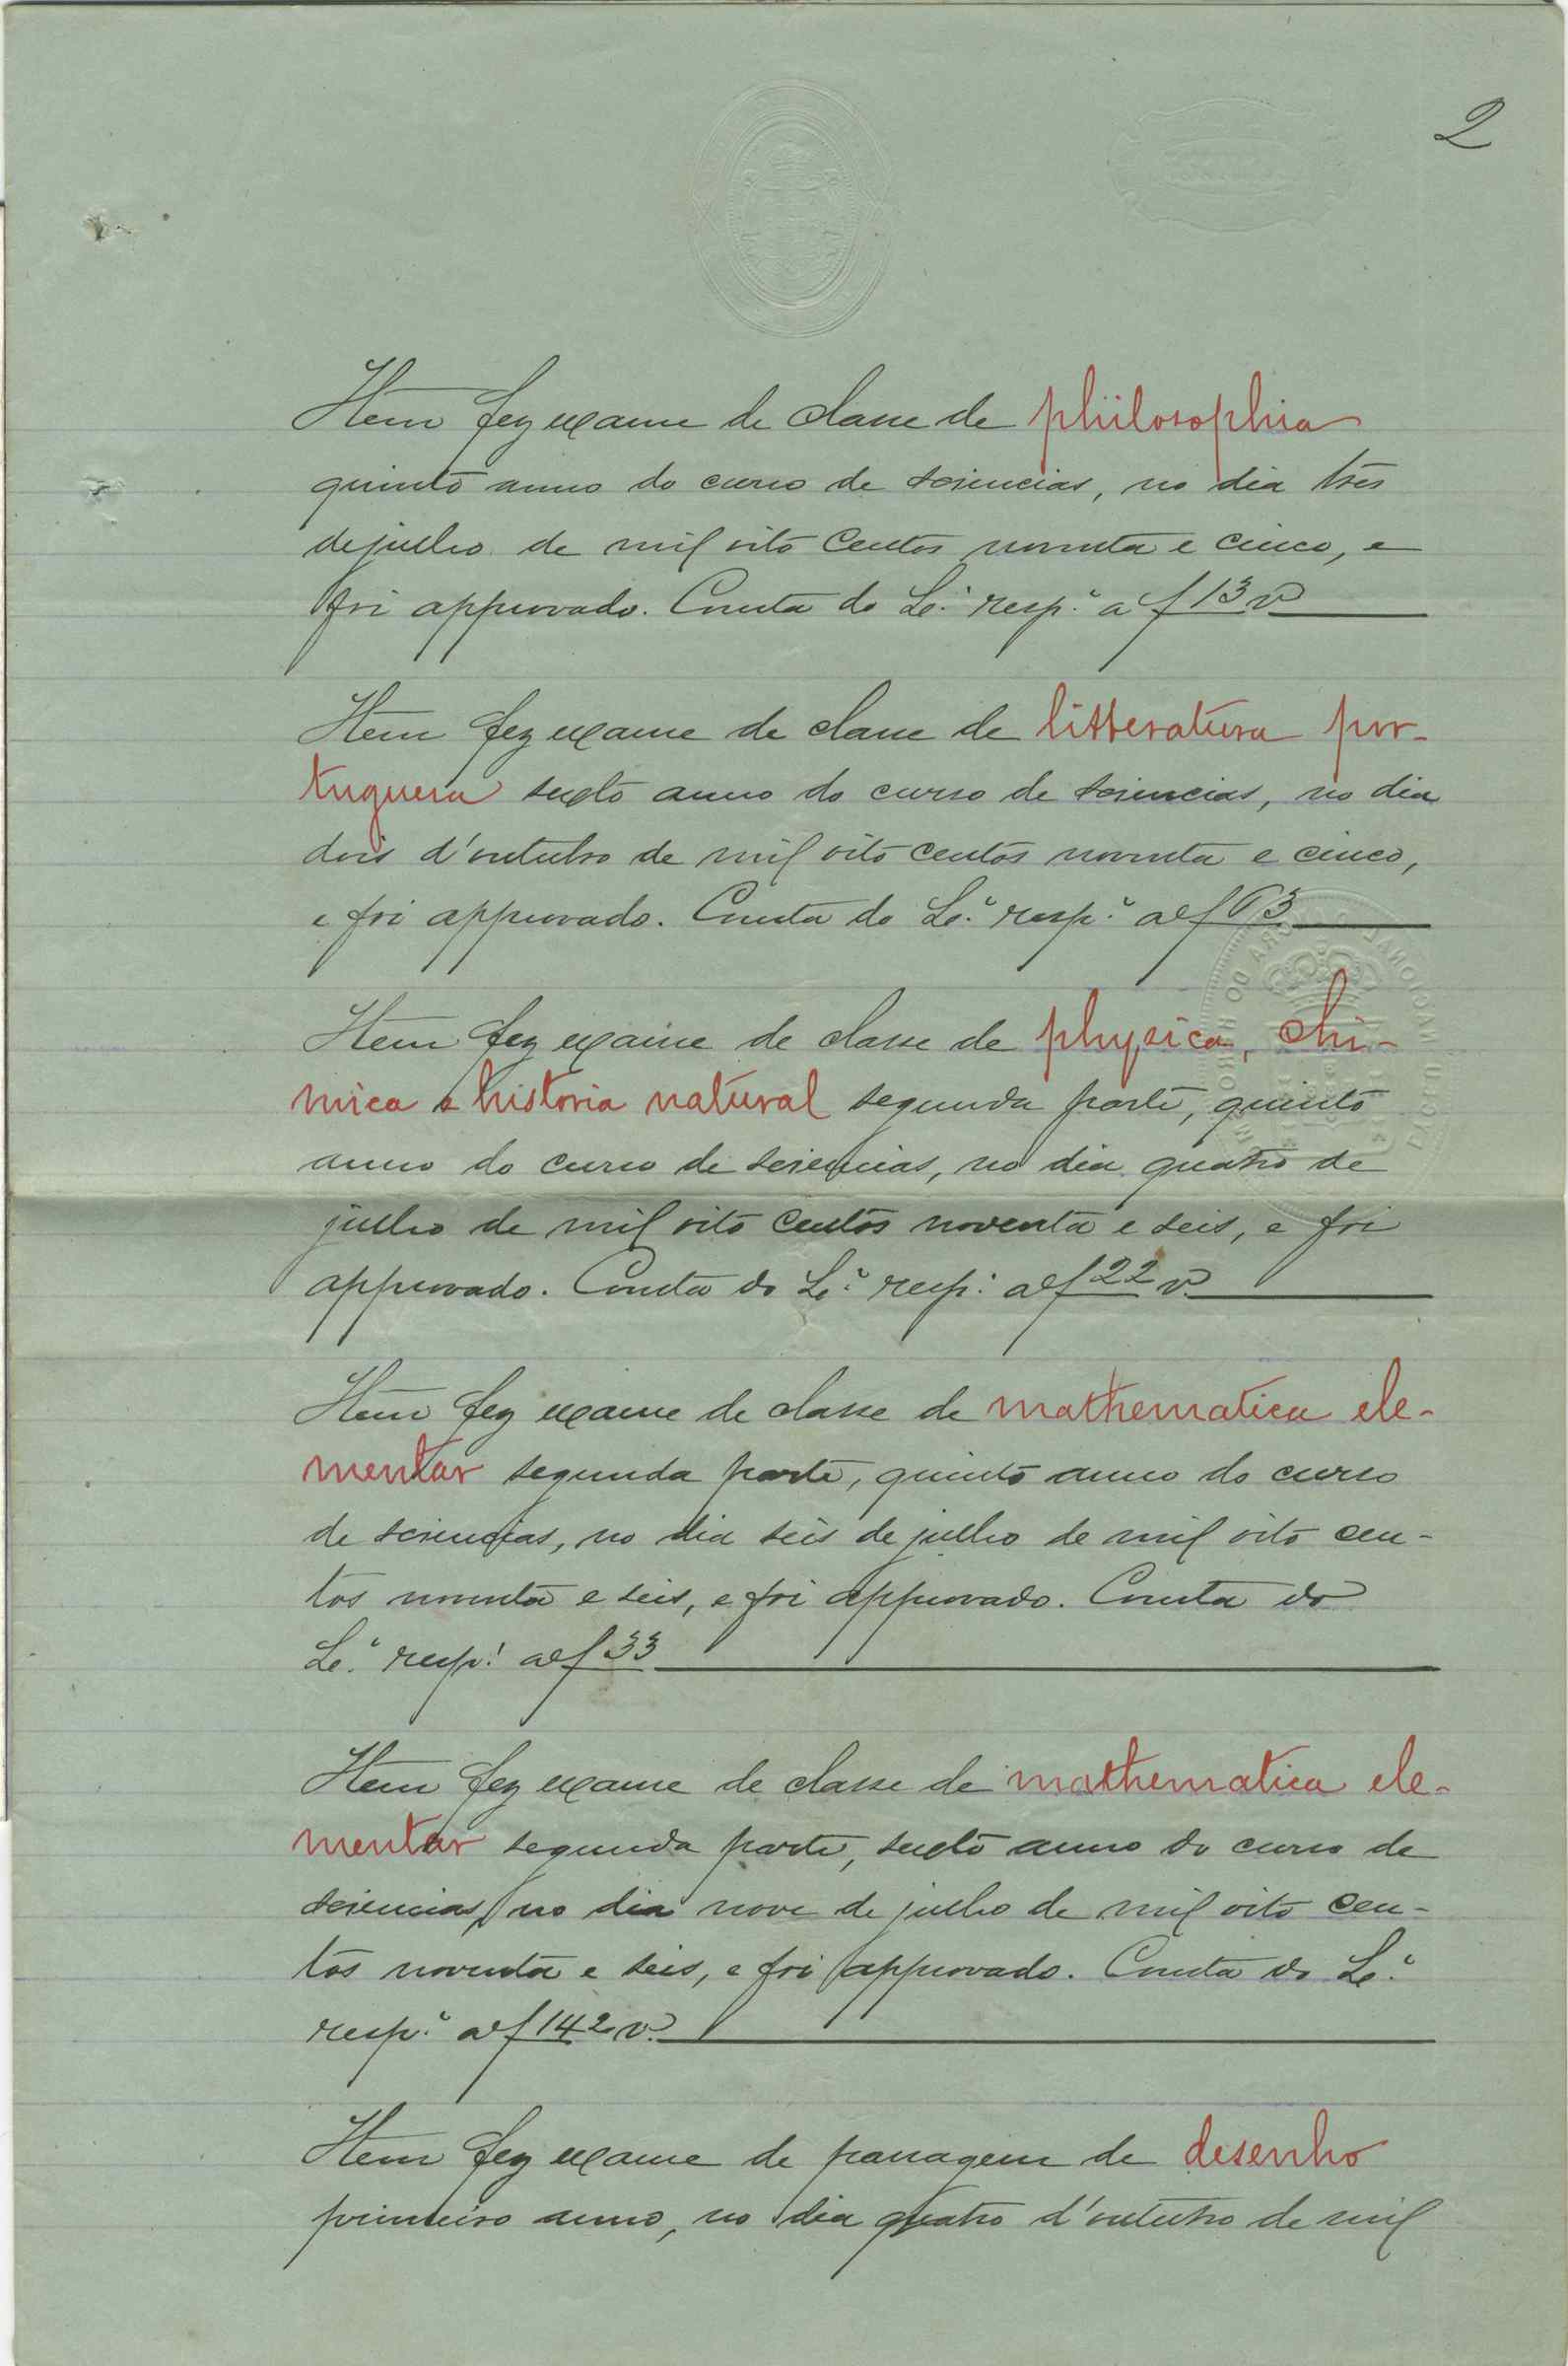 2
Item fez exame de classe de philosophia
quinto anno do curso de sciencias, no dia tres
de julho de mil oito centos noventa e cinco, e
foi approvado. Consta do L.º resp.º a f 13 v
Item fez exame de classe de litteratura por-
tugueza sexto anno do curso de sciencias, no dia
dois d'outubro de mil oito centos noventa e cinco,
e foi approvado. Consta do L.º resp.º a f 63
Item fez exame de classe de physica, chi-
mica e historia natural segunda parte, quinto
anno do curso de sciencias, no dia quatro de
julho de mil oito centos noventa e seis, e foi
approvado. Consta do L.º resp.º a f 22 v.
Item fez exame de classe de mathematica ele-
mentar segunda parte, quinto anno do curso
de sciencias, no dia seis de julho de mil oito cen-
tos noventa e seis, e foi approvado. Consta do
L.º resp.º a f 33
Item fez exame de classe de mathematica ele-
mentar segunda parte, sexto anno do curso de
sciencias, no dia nove de julho de mil oito cen-
tos noventa e seis, e foi approvado. Consta do L.º
resp.º a f 142 v.
Item fez exame de passagem de desenho
primeiro anno, no dia quatro d'outubro de mil